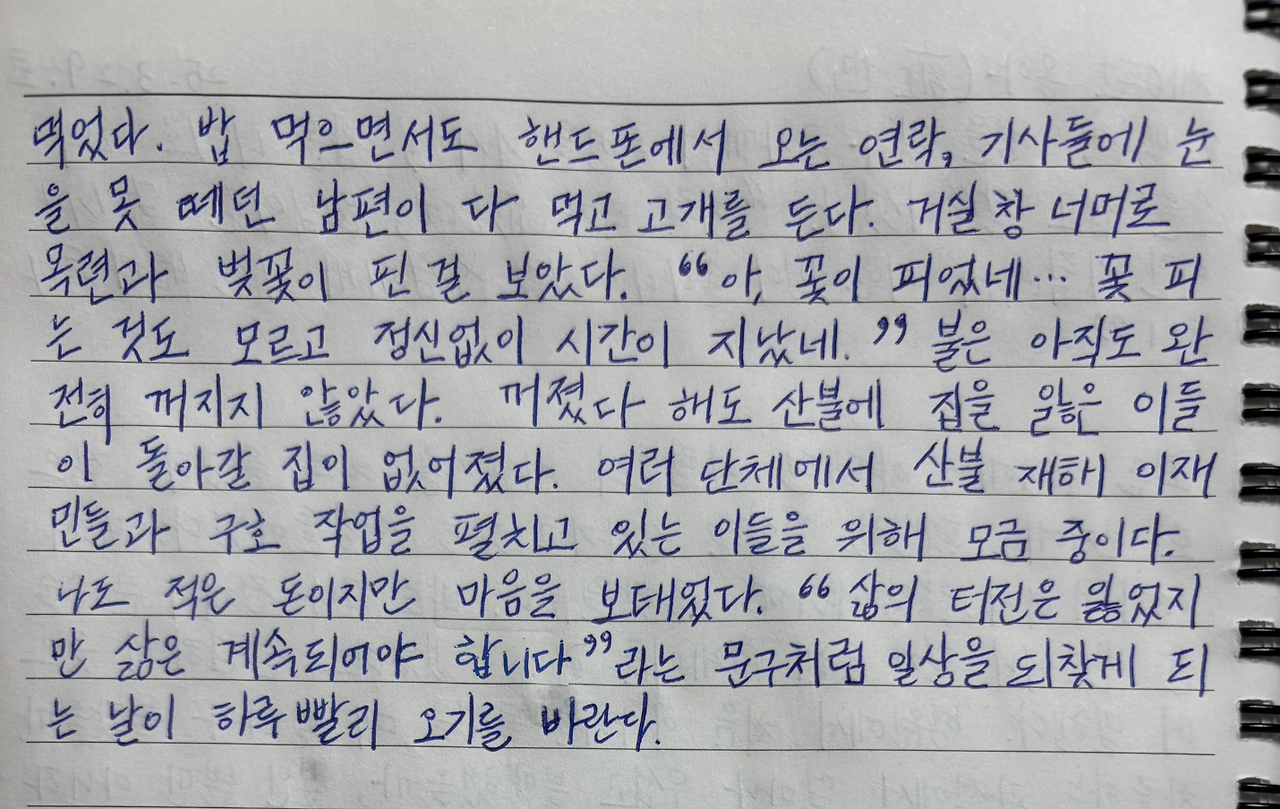 먹었다. 밥 먹으면서도 핸드폰에서 오는 연락, 기사들에 눈
을 못 떼던 남편이 다 먹고 고개를 든다. 거실 창 너머로
목련과 벚꽃이 핀 걸 보았다. “아, 꽃이 피었네… 꽃 피
는 것도 모르고 정신없이 시간이 지났네.” 불은 아직도 완
전히 꺼지지 않았다. 꺼졌다 해도 산불에 집을 잃은 이들
이 돌아갈 집이 없어졌다. 여러 단체에서 산불 재해 이재
민들과 구호 작업을 펼치고 있는 이들을 위해 모금 중이다.
나도 적은 돈이지만 마음을 보태었다. “삶의 터전은 잃었지
만 삶은 계속되어야 합니다”라는 문구처럼 일상을 되찾게 되
는 날이 하루빨리 오기를 바란다.